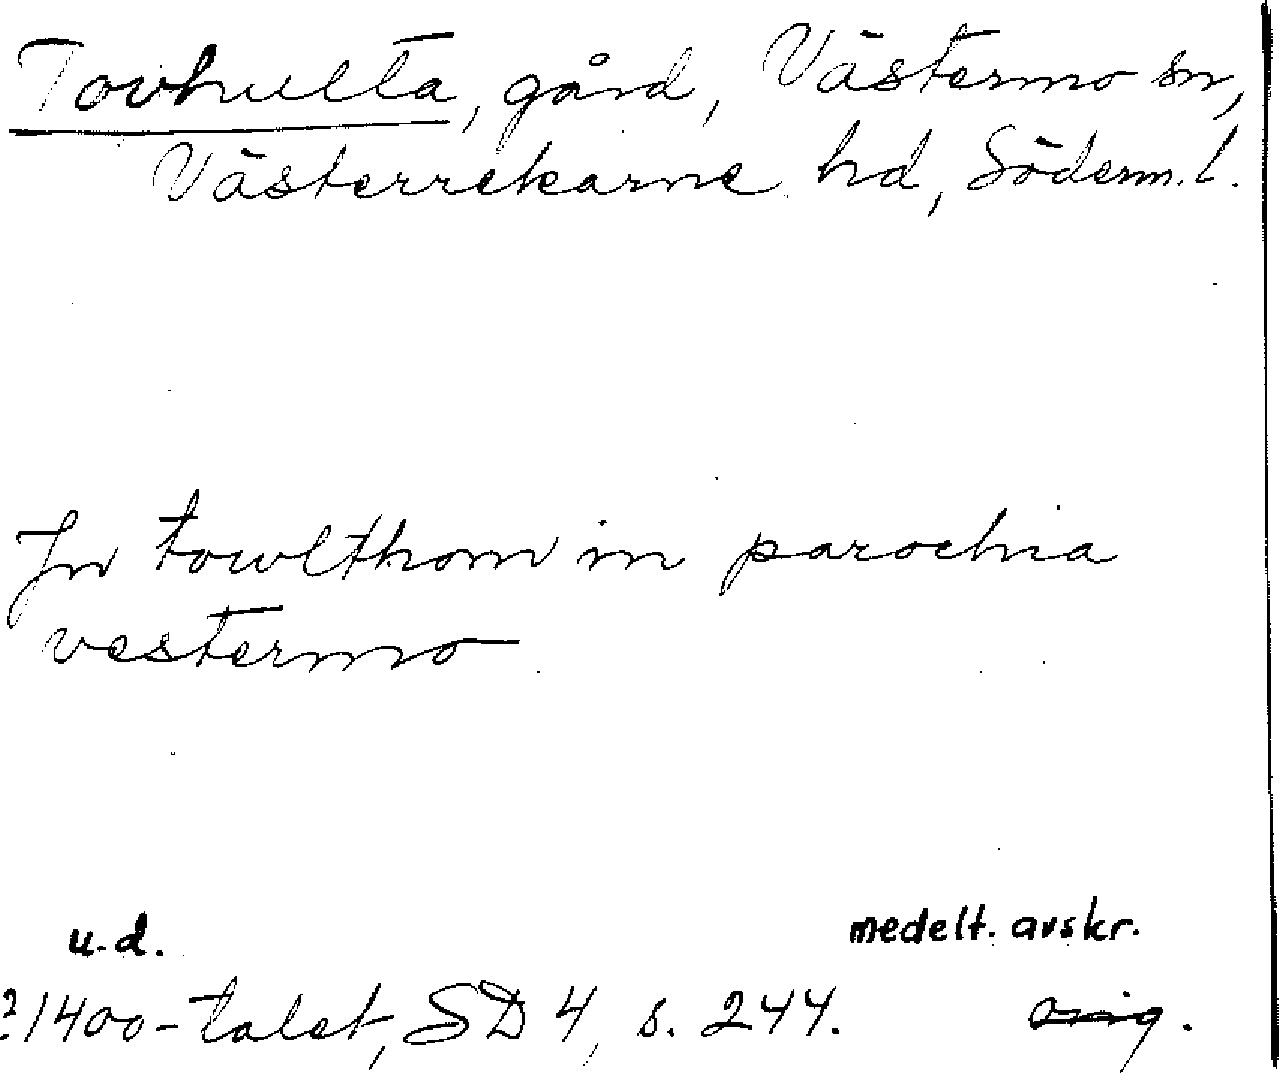 Tovhulta, gård, Västermo sn,
Västerrekarne hd, Söderm. l.
In towlthom in parochia
vestermo
u. d.
medelt. avskr.
1400-talet, SD 4, s. 244.
orig.